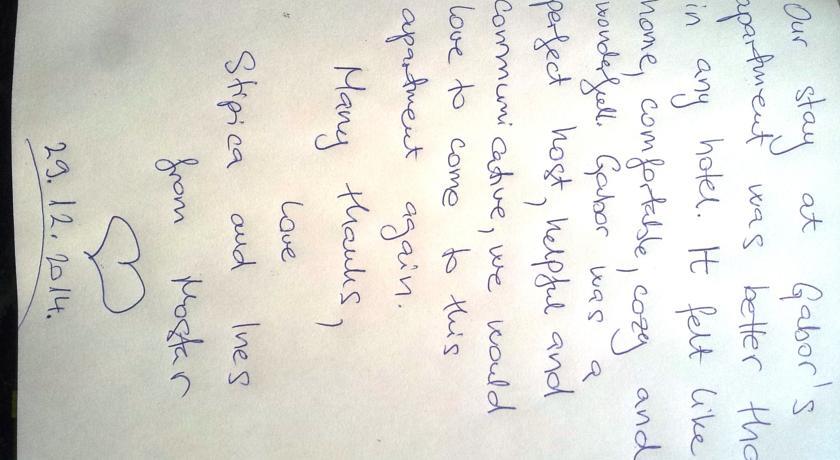 Our stay at Gabor's
apartment was better tha
in any hotel. It felt like
home, comfortable, cozy and
wonderfull. Gabor was a
perfect host, helpful and
communicative, we would
love to come to this
apartment again.
Many thanks,
love
Stipica and Ines
from Mostar
29.12.2014.